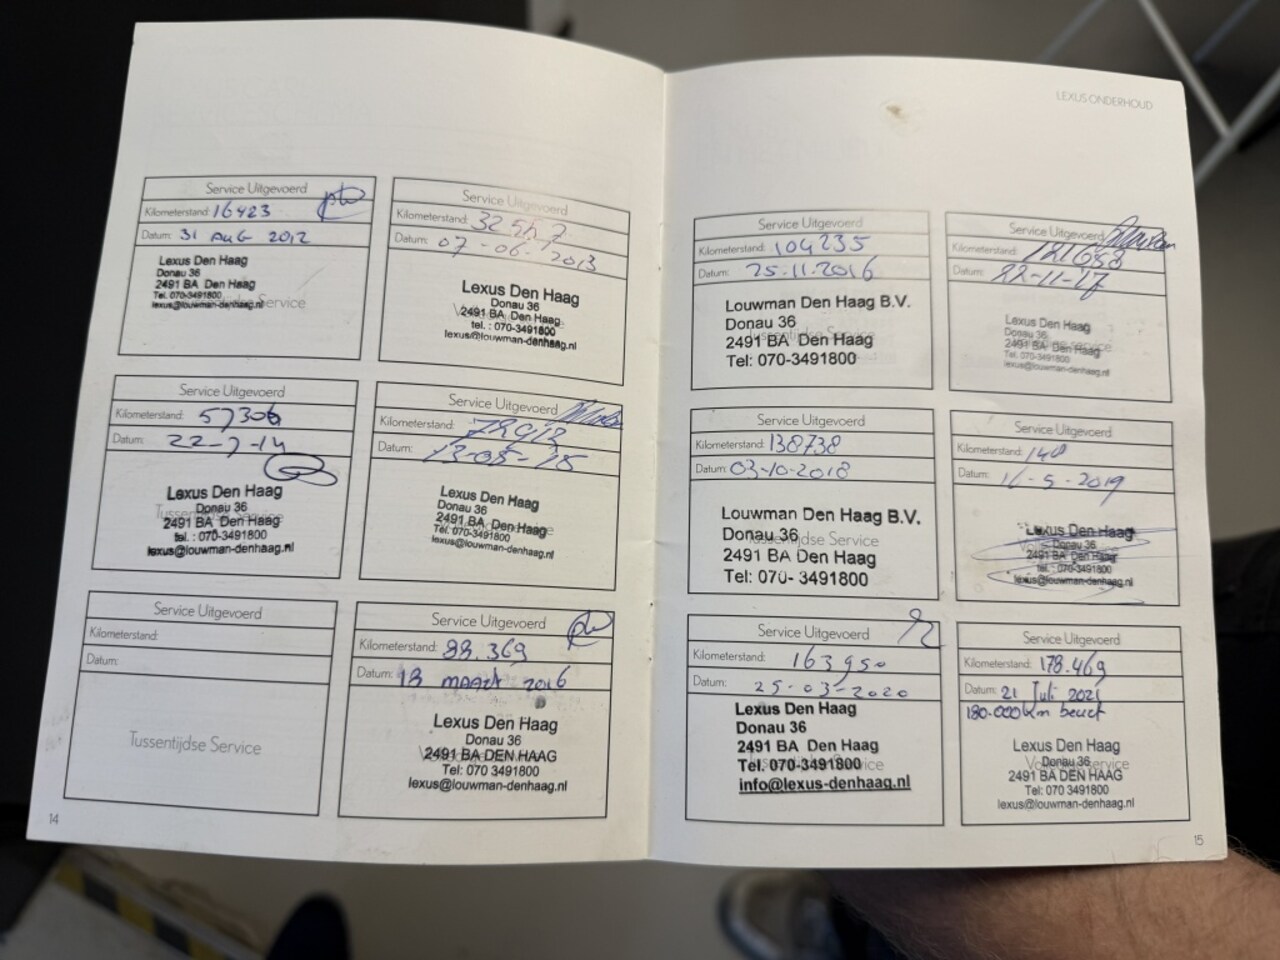 Service Uitgevoerd
Kilometerstand: 16423
Datum: 31 AUG 2012
Lexus Den Haag
Donau 36
2491 BA Den Haag
Tel. 070-3491800
Tussentijdse Service
lexus@louwman-denhaag.nl
Service Uitgevoerd
Kilometerstand:
Datum: 07-06-2013
Lexus Den Haag
Donau 36
2491 BA Den Haag
tel. : 070-3491800
lexus@louwman-denhaag.nl
Service Uitgevoerd
Kilometerstand: 57306
Datum: 22-7-14
Lexus Den Haag
Donau 36
Tussentijdse Service
2491 BA Den Haag
tel. : 070-3491800
lexus@louwman-denhaag.nl
Service Uitgevoerd
Kilometerstand:
Datum: 13-05-15
Lexus Den Haag
Donau 36
2491 BA Den Haag
Tel. 070-3491800
lexus@louwman-denhaag.nl
Service Uitgevoerd
Kilometerstand:
Datum:
Tussentijdse Service
Service Uitgevoerd
Kilometerstand: 88.369
Datum: 18 maart 2016
Lexus Den Haag
Donau 36
2491 BA DEN HAAG
Tel: 070 3491800
lexus@louwman-denhaag.nl
14
LEXUS ONDERHOUD
Service Uitgevoerd
Kilometerstand: 104235
Datum: 25.11.2016
Louwman Den Haag B.V.
Donau 36
Tussentijdse Service
2491 BA Den Haag
Tel: 070-3491800
Service Uitgevoerd
Kilometerstand: 121658
Datum: 22-11-17
Lexus Den Haag
Donau 36
2491 BA Den Haag
Tel. 070-3491800
lexus@louwman-denhaag.nl
Service Uitgevoerd
Kilometerstand: 138738
Datum: 03-10-2018
Louwman Den Haag B.V.
Donau 36
Tussentijdse Service
2491 BA Den Haag
Tel: 070- 3491800
Service Uitgevoerd
Kilometerstand:
Datum: 16-5-2019
Lexus Den Haag
Donau 36
2491 BA Den Haag
tel. : 070-3491800
lexus@louwman-denhaag.nl
Service Uitgevoerd
Kilometerstand: 163950
Datum: 25-03-2020
Lexus Den Haag
Donau 36
2491 BA Den Haag
Tel. 070-3491800
Tussentijdse Service
info@lexus-denhaag.nl
Service Uitgevoerd
Kilometerstand: 178.469
Datum: 21 Juli 2021
180.000 km beurt
Lexus Den Haag
Donau 36
2491 BA DEN HAAG
Tel: 070 3491800
lexus@louwman-denhaag.nl
15